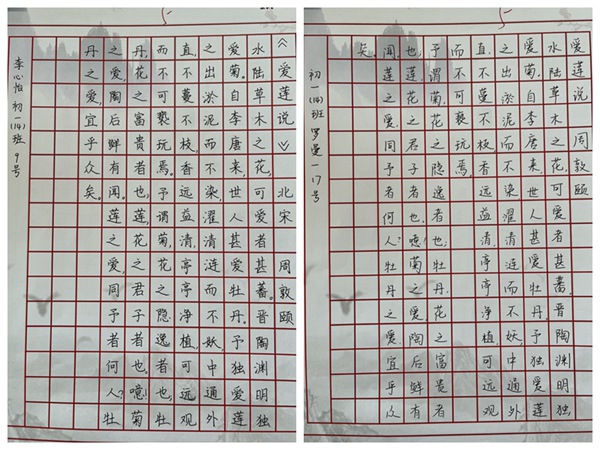 《爱莲说》 北宋 周敦颐
水陆草木之花,可爱者甚蕃。晋陶渊明独
爱菊。自李唐来,世人甚爱牡丹。予独爱莲
之出淤泥而不染,濯清涟而不妖,中通外
直,不蔓不枝,香远益清,亭亭净植,可远观
而不可亵玩焉。予谓菊,花之隐逸者也,牡
丹,花之富贵者也,莲,花之君子者也。噫!菊
之爱,陶后鲜有闻。莲之爱,同予者何人?牡
丹之爱,宜乎众矣。
李心怡 初一(14)班 9号
爱莲说 周敦颐
水陆草木之花,可爱者甚蕃。晋陶渊明独
爱菊。自李唐来,世人甚爱牡丹。予独爱莲
之出淤泥而不染,濯清涟而不妖,中通外
直,不蔓不枝,香远益清,亭亭净植,可远观
而不可亵玩焉。
予谓菊,花之隐逸者也;牡丹,花之富贵者
也;莲,花之君子者也。噫!菊之爱,陶后鲜有
闻。莲之爱,同予者何人?牡丹之爱,宜乎众
矣。
初一(14)班 罗曼一 17号